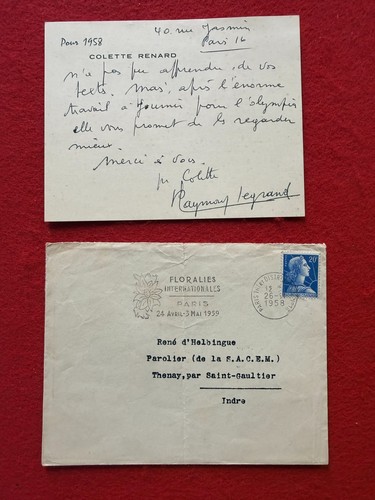 40. rue Jasmin
Paris 16
1958
COLETTE RENARD
n'a pas pu apprendre de vos
texts. Mais, après l'énorme
travail à fournir pour l'olympia
elle vous promet de les regarder
mieux.
Merci à vous.
pr Colette
Raymond Legrand
FLORALIES
INTERNATIONALES
PARIS
24 AVRIL-3 MAI 1959
PARIS
26
1958
20F
René d'Helbingue
Parolier (de la S.A.C.E.M.)
Thenay,par Saint-Gaultier
Indre